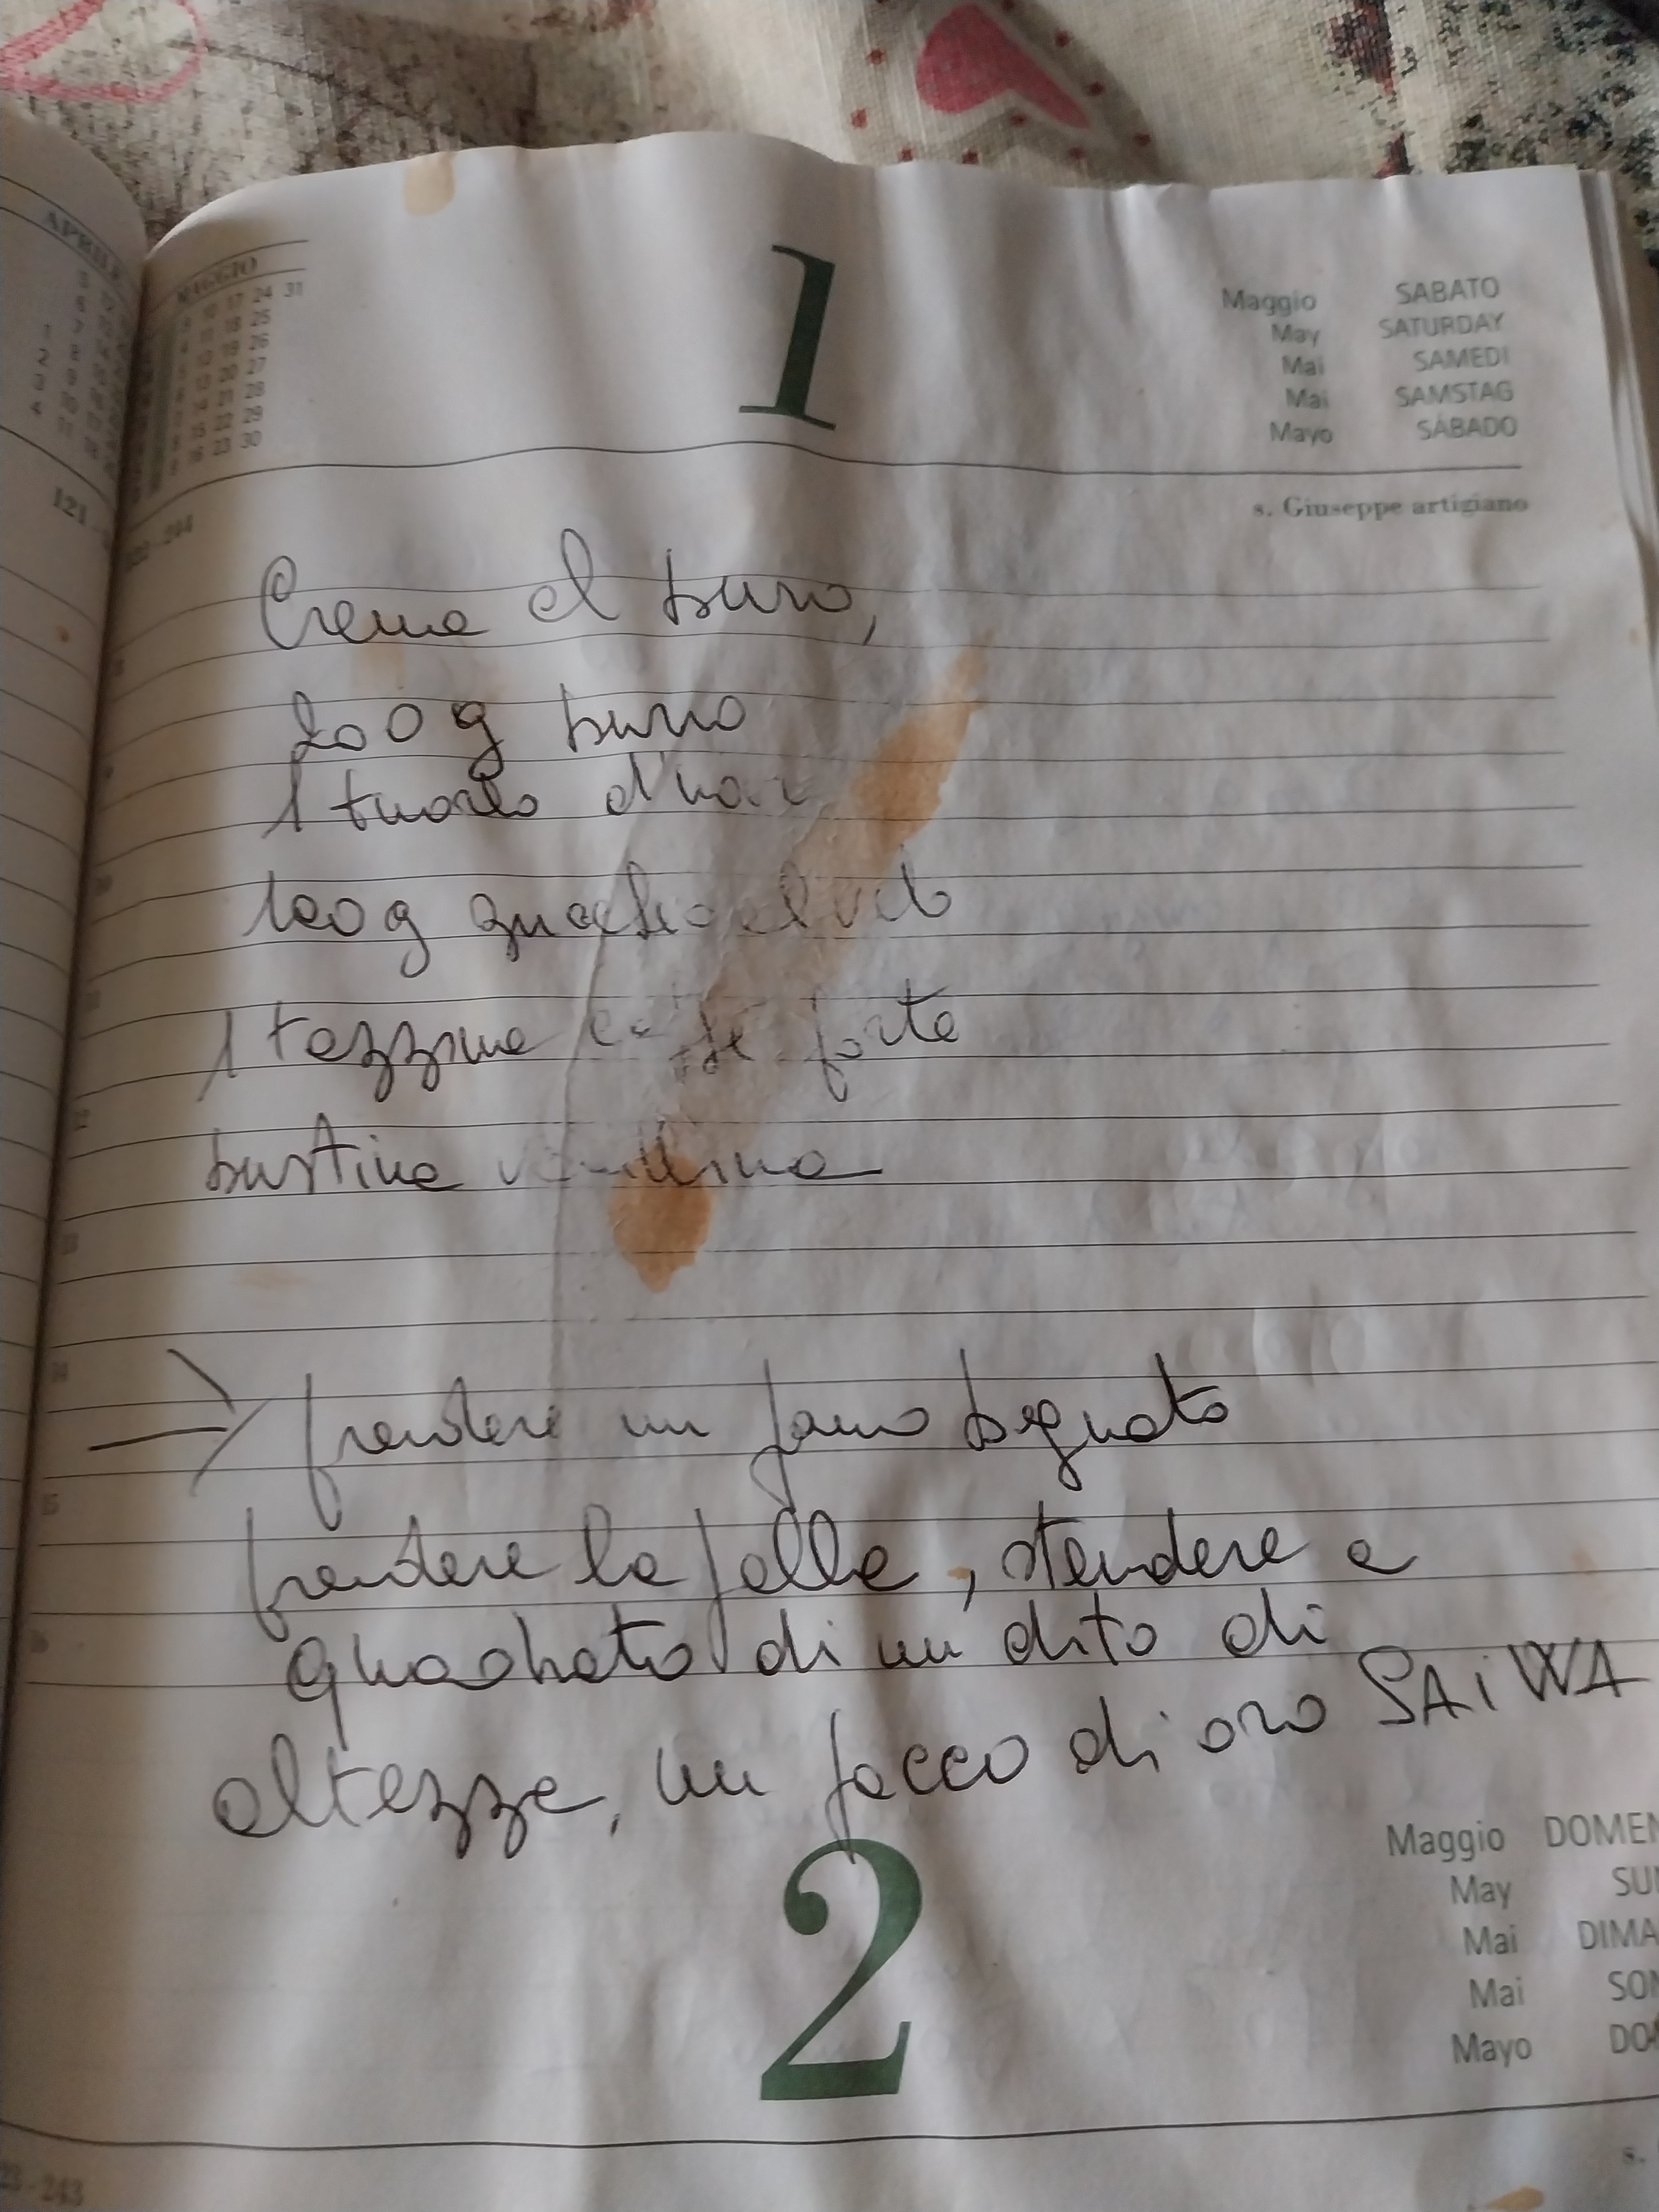 APRILE
MAGGIO
10 17 24 31
11 18 25
12 19 26
13 20 27
14 21 28
15 22 29
16 23 30
1
Maggio SABATO
May SATURDAY
Mai SAMEDI
Mai SAMSTAG
Mayo SÁBADO
121
s. Giuseppe artigiano
Crema al burro,
200 g burro
1 tuorlo d'uovo
100 g zucchero al velo
1 tazzina caffè forte
bustina vanillina
prendere un panno bagnato
prendere la palla, stendere a
quadrato di un dito di
altezza, un pacco di oro SAIWA
2
Maggio DOMEN
May SUN
Mai DIMA
Mai SON
Mayo DOM
23-243
s.